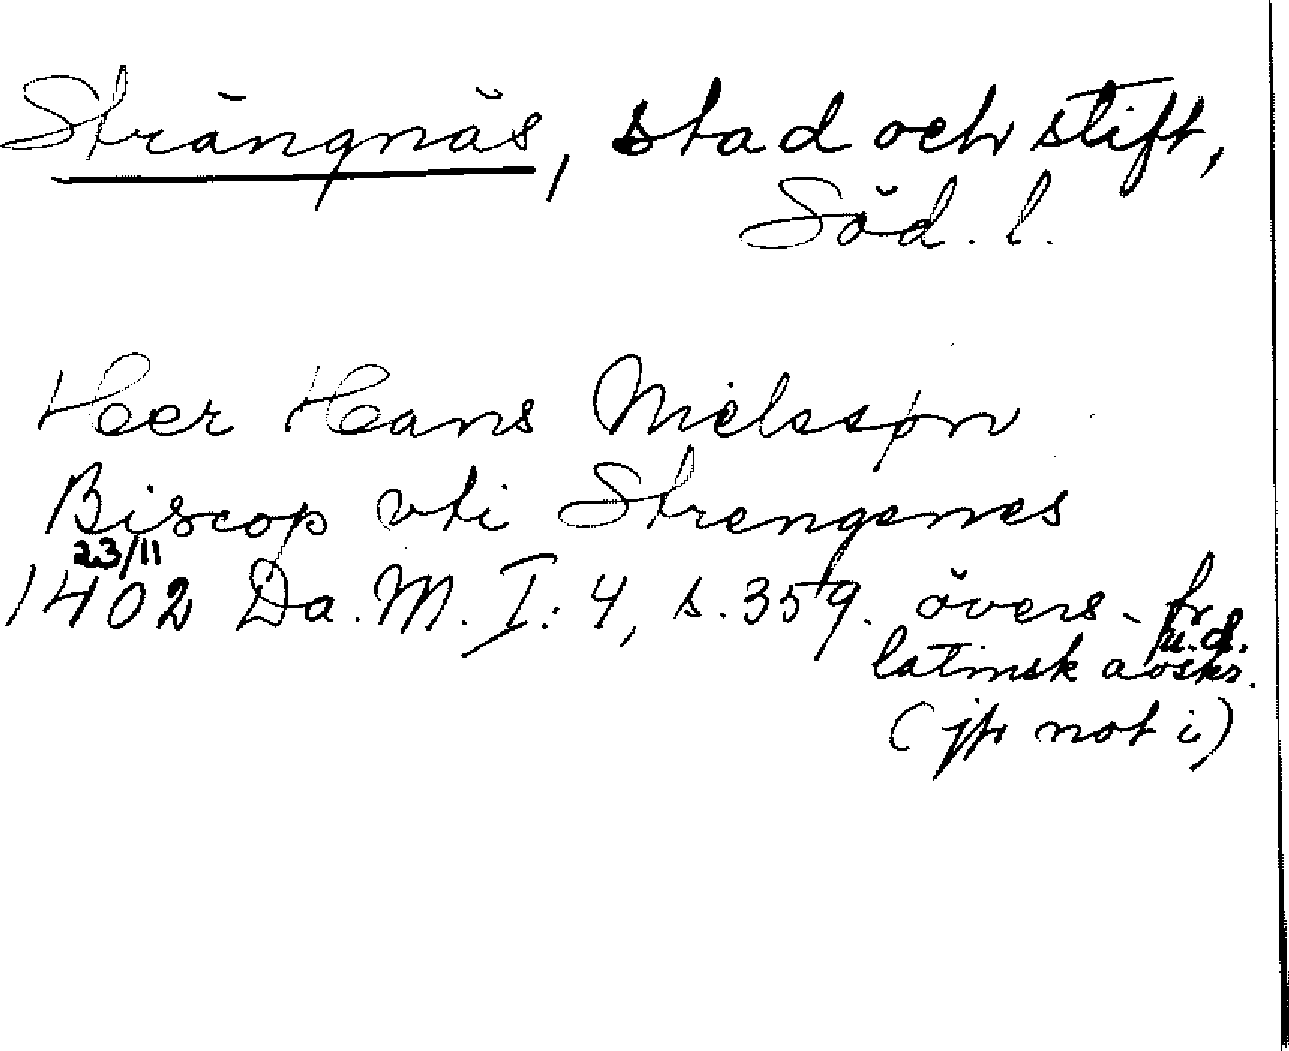 Strängnäs, stad och stift,
Söd. l.
Heer Hans Nielssøn
Biscop vti Strengenes
23/11
1402 Da. M. I: 4, s. 359. övers. fr.
latinsk avskr. u. d.
(jfr not i)